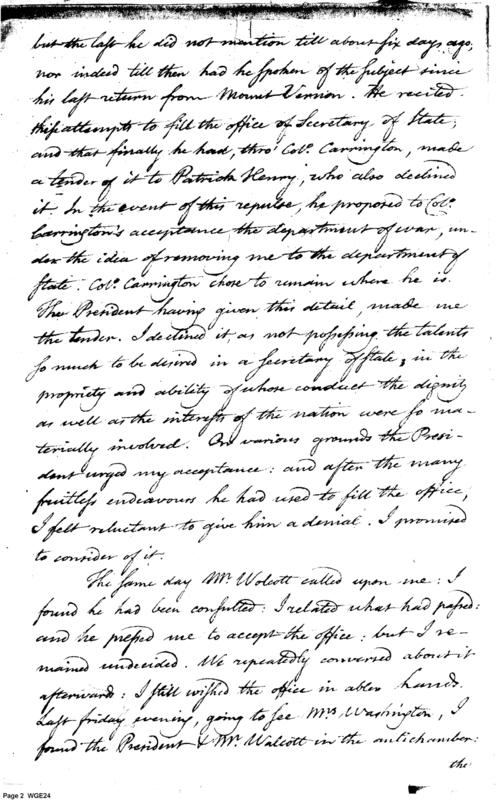 but the last he did not mention till about six days ago;
nor indeed till then had he spoken of the subject since
his last return from Mount Vernon. He recited
this attempts to fill the office of Secretary of State;
and that finally he had, thro' Colo. Carrington, made
a tender of it to Patrick Henry, who also declined
it. In the event of this repulse, he proposed to Colo.
Carrington's acceptance the department of war, un-
der the idea of removing me to the department of
State. Colo. Carrington chose to remain where he is.
The President having given this detail, made me
the tender. I declined it, as not possessing the talents
so much to be desired in a Secretary of State, in the
propriety and ability of whose conduct the dignity
as well as the interests of the nation were so ma-
terially involved. On various grounds the Presi-
dent urged my acceptance: and after the many
fruitless endeavours he had used to fill the office,
I felt reluctant to give him a denial. I promised
to consider of it.
The same day Mr. Wolcott called upon me: I
found he had been consulted: I related what had passed:
and he pressed me to accept the office: but I re-
mained undecided. We repeatedly conversed about it
afterwards: I still wished the office in abler hands.
Last friday evening, going to see Mrs. Washington, I
found the President & Mr. Walcott in the antichamber:
the
Page 2 WGE24